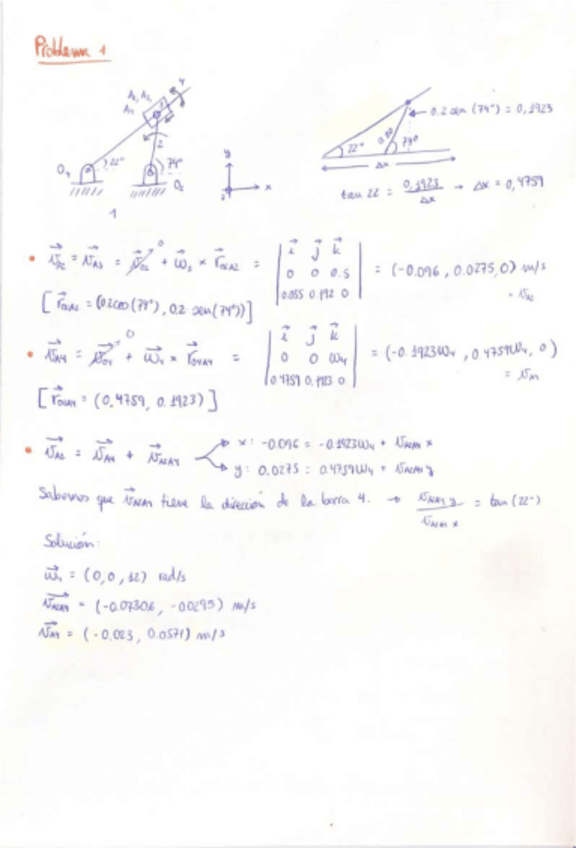 Problema 1
A₂, A₃,
A₄
4
3
2
22°
74°
O₄
O₂
1
y
x
z
0.2 sen (74°) = 0,1923
22°
0.20
74°
Δx
tan 22 = 0,1923 / Δx → Δx = 0,4759
• v⃗A2 = v⃗A3 = v⃗O2 + ω⃗₂ × r⃗O2A2 = | i⃗ j⃗ k⃗ | = (-0.096, 0.0275, 0) m/s
0
0 0 0.5
0.055 0.192 0
= vA2
[ r⃗O2A2 = (0.2cos(74°), 0.2 sen(74°)) ]
• v⃗A4 = v⃗O4 + ω⃗₄ × r⃗O4A4 = | i⃗ j⃗ k⃗ | = (-0.1923ω₄, 0.4759ω₄, 0)
0
0 0 ω₄
0.4759 0.1923 0
= vA4
[ r⃗O4A4 = (0,4759, 0.1923) ]
• v⃗A2 = v⃗A4 + v⃗A2A4
x: -0.096 = -0.1923ω₄ + vA2A4 x
y: 0.0275 = 0.4759ω₄ + vA2A4 y
Sabemos que v⃗A2A4 tiene la dirección de la barra 4. → vA2A4 y / vA2A4 x = tan (22°)
Solución:
ω⃗₄ = (0,0,12) rad/s
v⃗A2A4 = (-0.07306, -0.0295) m/s
v⃗A4 = (-0.023, 0.0571) m/s